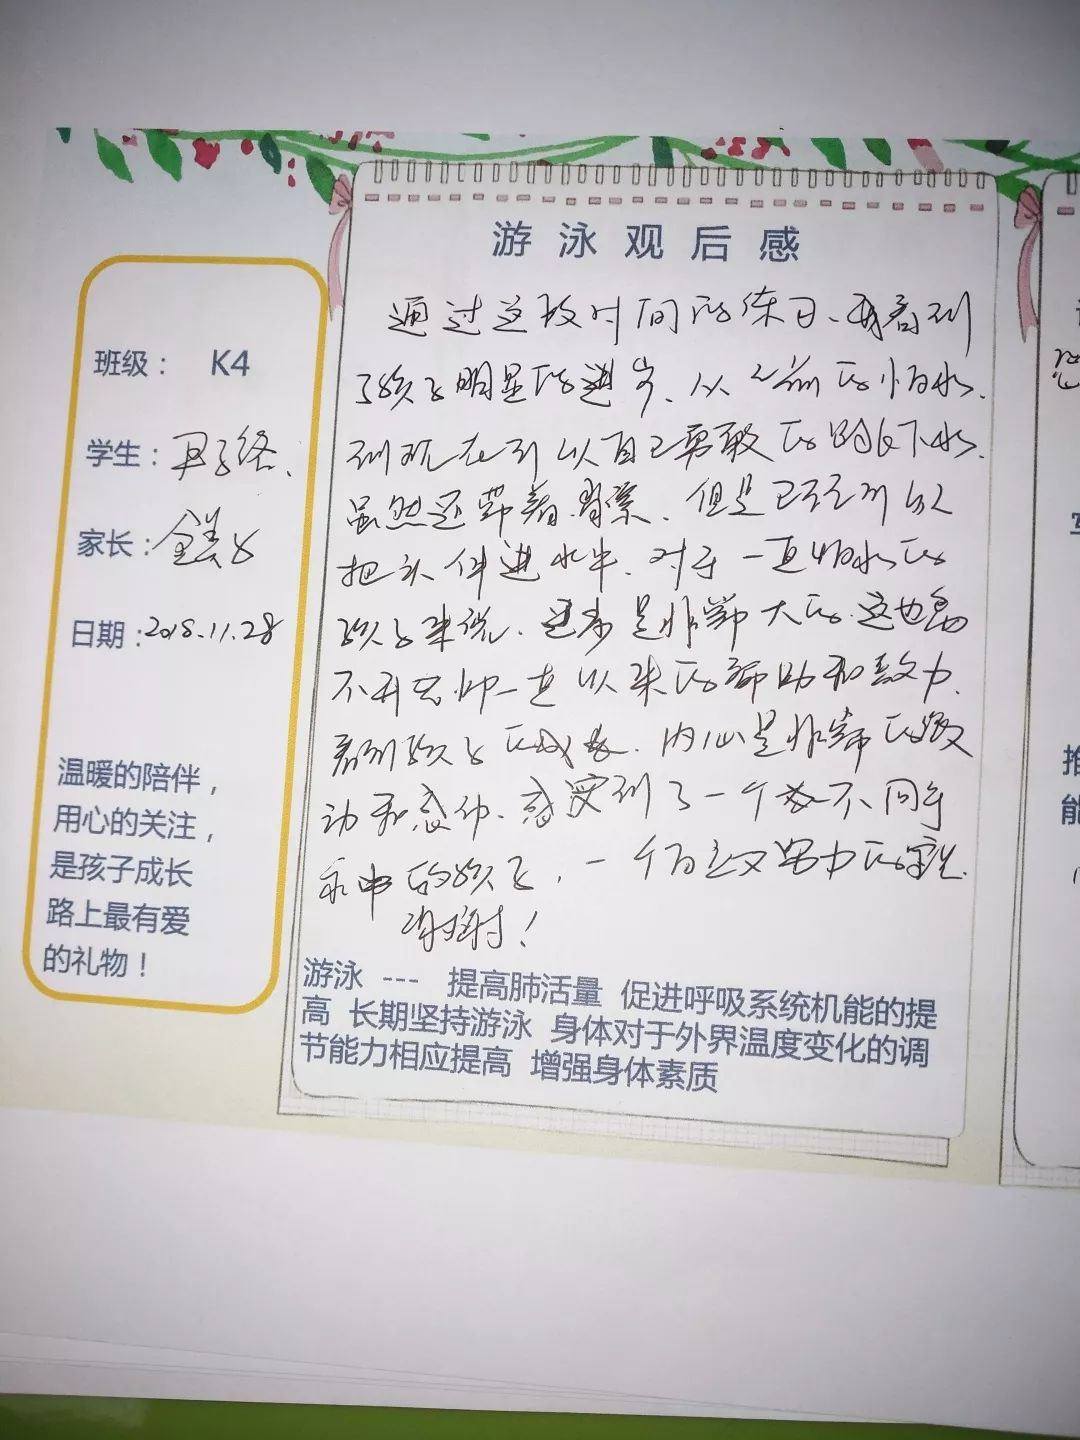 游泳观后感
班级： K4
学生：尹子络
家长：金美
日期：2018.11.28
温暖的陪伴，
用心的关注，
是孩子成长
路上最有爱
的礼物！
通过这段时间的练习、我看到
了孩子明显的进步、从之前的怕水、
到现在可以自己勇敢的跳下水、
虽然还带着背漂、但是已经可以
把头伸进水中、对于一直怕水的
孩子来说、进步是非常大的、这也离
不开老师一直以来的帮助和教力、
看到孩子的成长、内心是非常的激
动和感动、感受到了一个个不同于
家中的孩子、一个自立又努力的宝宝
谢谢！
游泳 --- 提高肺活量 促进呼吸系统机能的提
高 长期坚持游泳 身体对于外界温度变化的调
节能力相应提高 增强身体素质
能